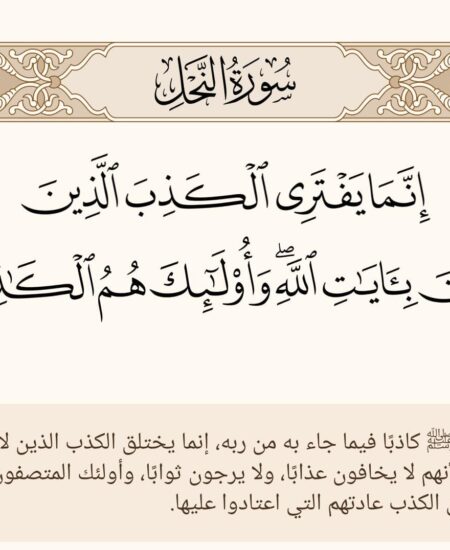 سُورَةُ النَّحْلِ
إِنَّمَا يَفْتَرِى ٱلْكَذِبَ ٱلَّذِينَ
بِـَٔايَٰتِ ٱللَّهِۖ وَأُوْلَٰٓئِكَ هُمُ
ﷺ كاذبًا فيما جاء به من ربه، إنما يختلق الكذب الذين لا
لا يخافون عذابًا، ولا يرجون ثوابًا، وأولئك المتصفون
الكذب عادتهم التي اعتادوا عليها.